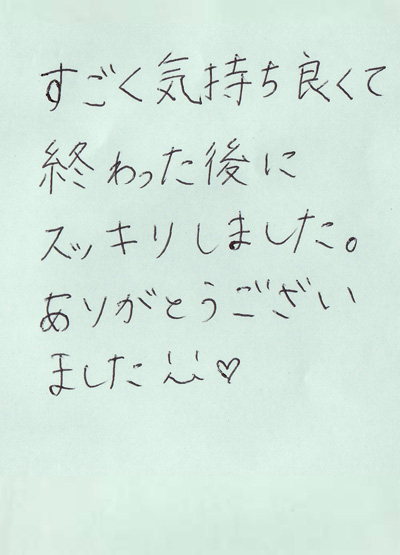 すごく気持ち良くて
終わった後に
スッキリしました。
ありがとうござい
ました ♡